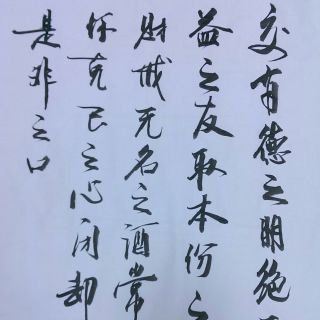 交有德之朋绝
益之友取本份之
财戒无名之酒常
怀克己之心闭却
是非之口